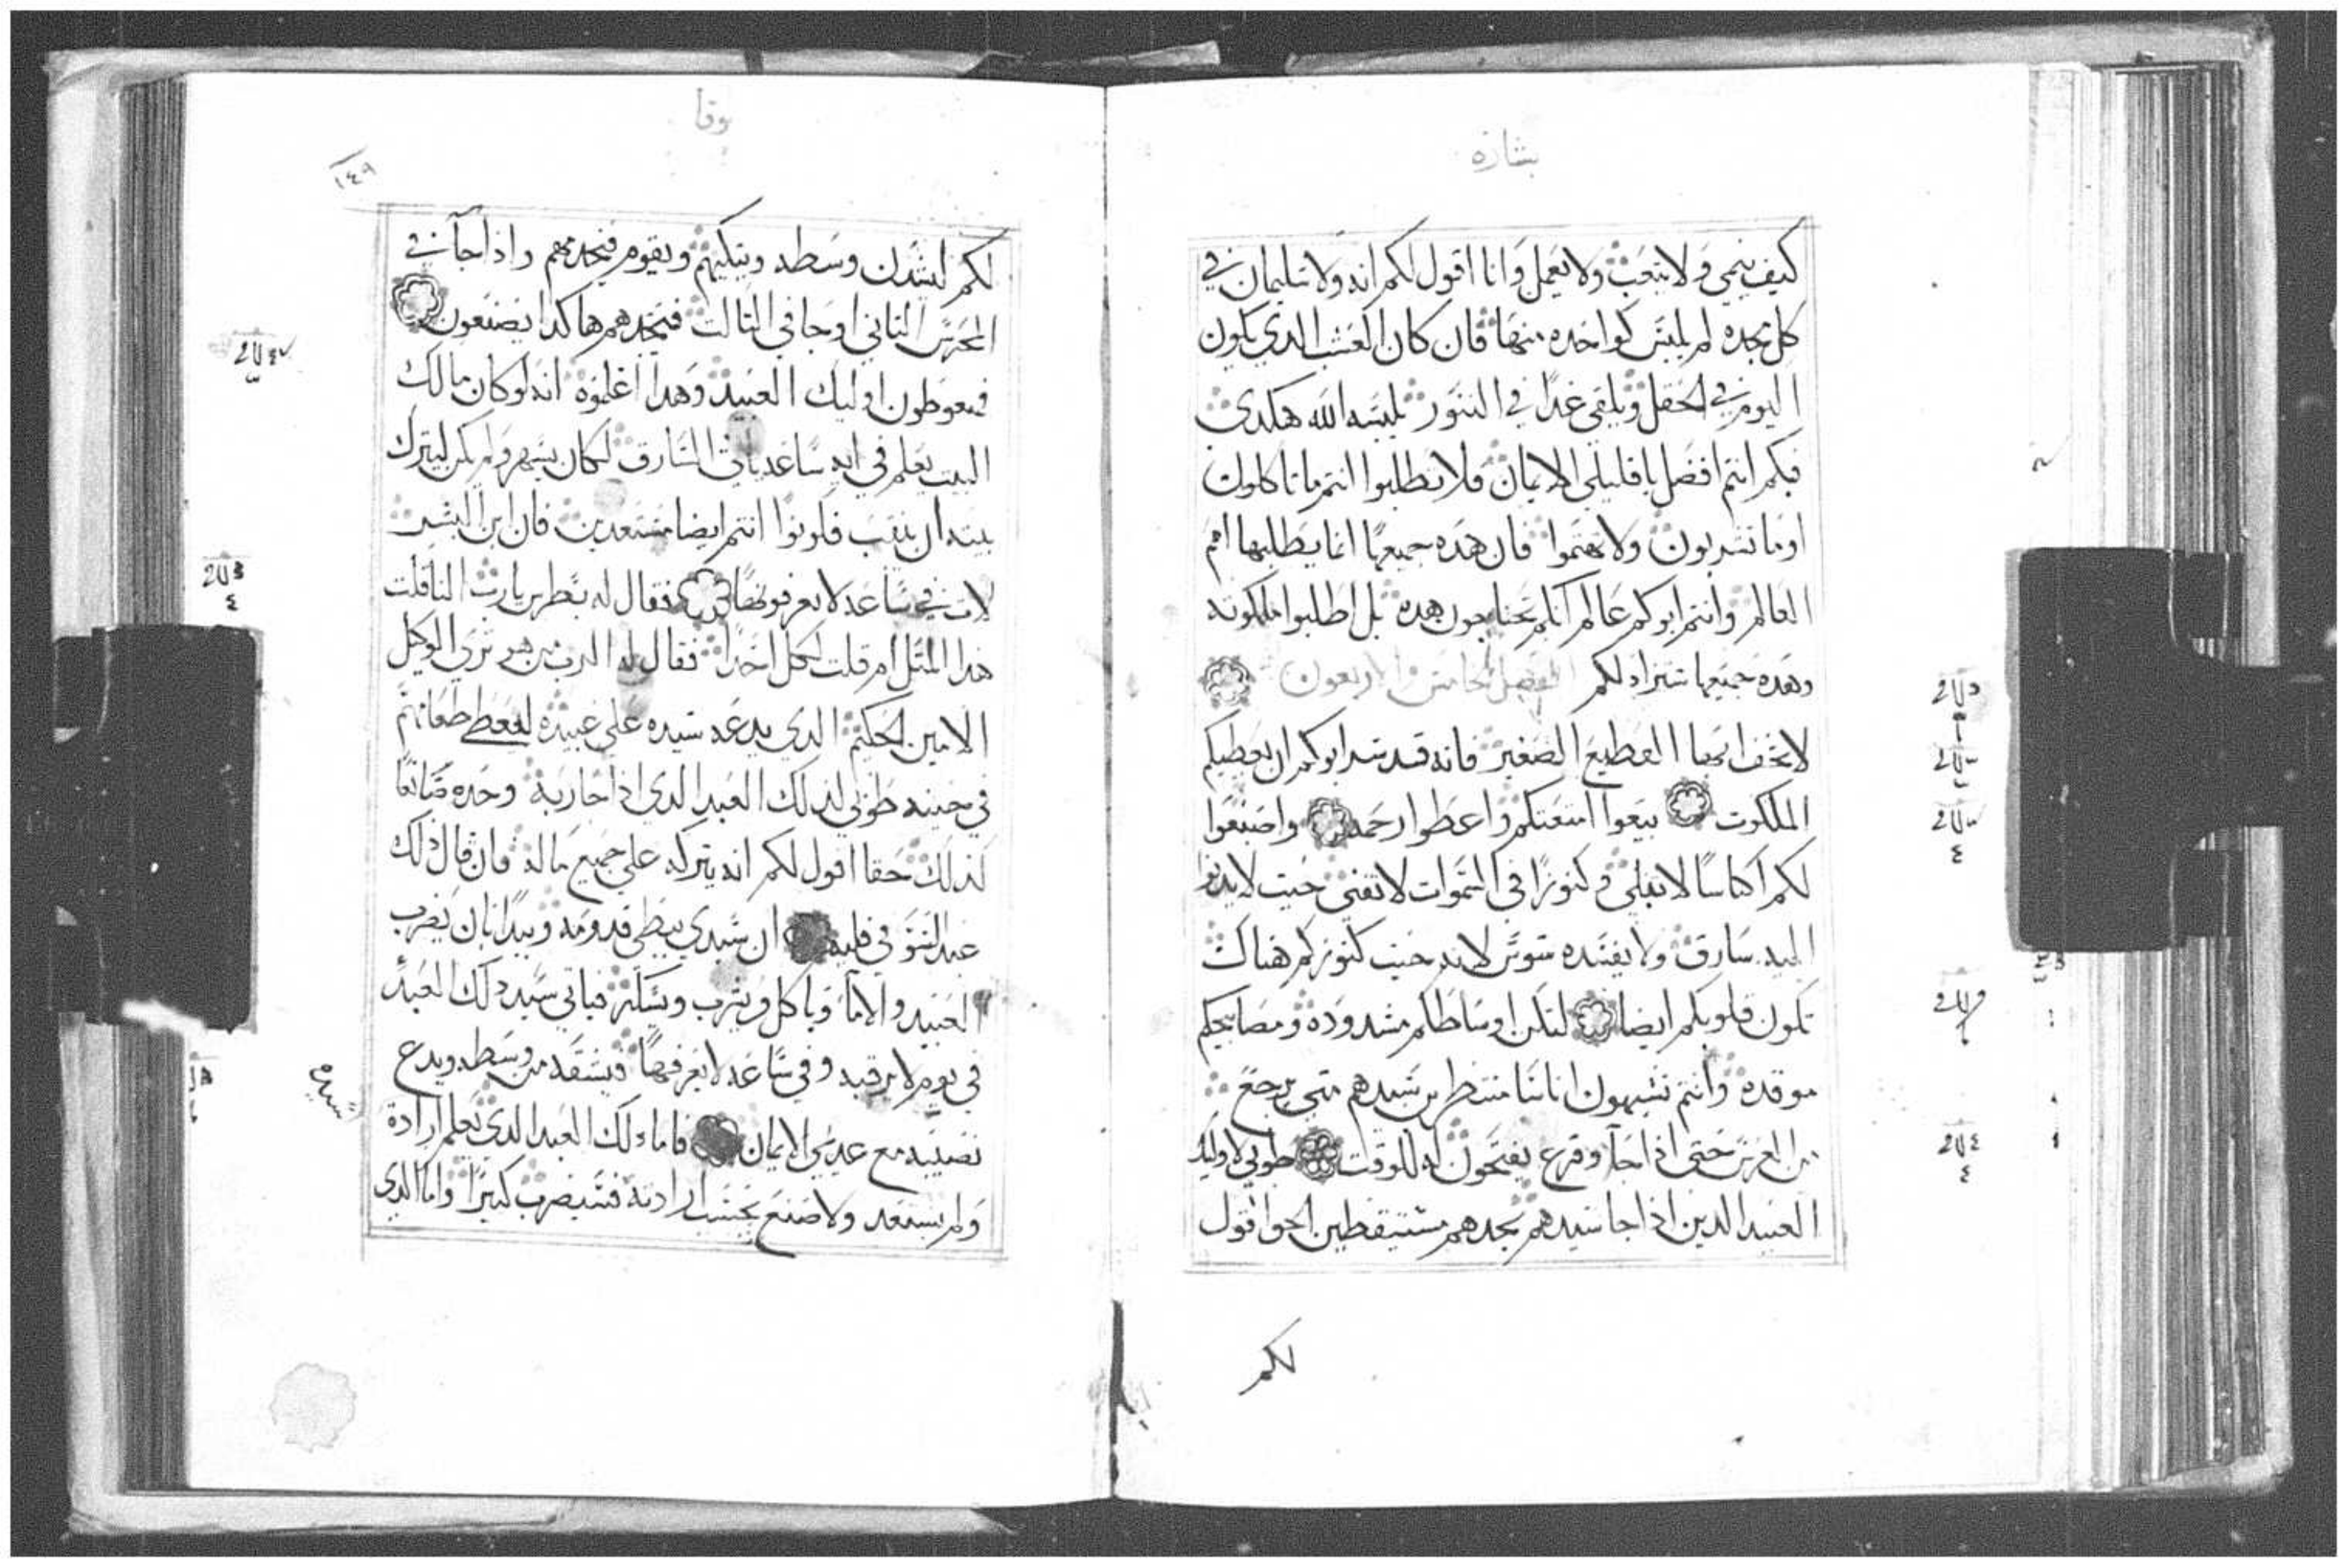 بشارة
كيف ينمي ولا يتعب ولا يعمل وانا اقول لكم انه ولا سليمان في
كل مجده لم يلبس كواحده منها فان كان العشب الدي يكون
اليوم في الحقل ويلقي غدًا في التنور يلبسه الله هكدى
فبكم انتم افضل يا قليلي الايمان فلا تطلبوا انتم ما تاكلون
او ما تشربون ولا تهتموا فان هذه جميعها انما يطلبها امم
العالم وانتم ابوكم عالم انكم تحتاجون هده بل اطلبوا ملكوته
وهده جميعها ستزاد لكم الفصل الخامس والاربعون
لا تخف ايها القطيع الصغير فانه قد سر ابوكم ان يعطيكم
الملكوت بيعوا امتعتكم واعطوا رحمه واصنعوا
لكم اكياسًا لا تبلي وكنوزًا في السموات لا تفني حيت لا يدنوا
اليه سارق ولا يفسده سوس لانه حيت كنوزكم هناك
تكون قلوبكم ايضا لتكن اوساطكم مشدوده ومصابيحكم
موقده وانتم تشبهون اناسًا منتظرين سيدهم متي يرجع
من العرس حتي اذا جآ وقرع يفتحون له للوقت طوبي لاوليك
العبيد الدين اذا جا سيدهم يجدهم مستيقظين الحق اقول
لكم
لوقا
١٤٩
لكم ليشدن وسطه ويتكيهم ويقوم فيخدمهم واذا جآ في
المحرس التاني او جا في التالت فيجدهم هاكدا يصنعون
فمغوطون اوليك العبيد وهدا اعلموه انه لو كان مالك
البيت يعلم في ايه ساعه ياتي السارق لكان يسهر ولم يكن ليترك
بيته ان ينقب فكونوا انتم ايضا مستعدين فان ابن البشر
لات في ساعه لا تعرفونها فقال له بطرس يارب النا قلت
هدا المتل ام قلت لكل احدا فقال له الرب من هو تري الوكيل
الامين الحكيم الدي يدعه سيده علي عبيده ليعط طعامهم
في حينه طوبي لدلك العبد الدي اذا جا ربه وجده صانعًا
كذلك حقا اقول لكم انه يتركه علي جميع ماله فان قال ذلك
عبد السَوّ في قلبه ان سيدي يبطي قدومه ويبدا بان يضرب
العبيد والامآ وياكل ويشرب ويسكر فياتي سيد دلك العبد
في يوم لا يرقبه وفي ساعه لا يعرفها فيشقه من وسطه ويدع
نصيبه مع عديمي الايمان فاما دلك العبد الدي يعلم ارادة
سيده
ولم يستعد ولا صنع بحسب ارادته فسيضرب كتيرًا واما الدي